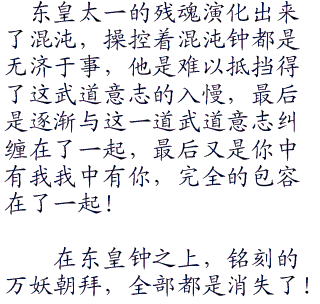 东皇太一的残魂演化出来
了混沌，操控着混沌钟都是
无济于事，他是难以抵挡得
了这武道意志的入慢，最后
是逐渐与这一道武道意志纠
缠在了一起，最后又是你中
有我我中有你，完全的包容
在了一起！
在东皇钟之上，铭刻的
万妖朝拜，全部都是消失了！